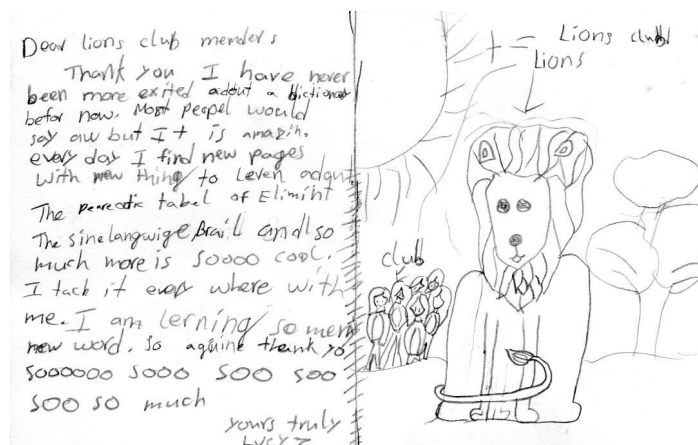 Dear lions club menders
Thank you I have never
been more exited adout a dictionary
befor now. Most peopel would
say aw but It is amazin.
every day I find new pages
with new thing to leven adout,
The perecotic tabel of Elimint
The sinelangwige Braill and so
much more is soooo cool.
I tack it every where with
me. I am lerning so meny
new word. so againe thank yo
soooooo sooo soo soo
soo so much
yours truly
Lucy
Lions club
Lions
club